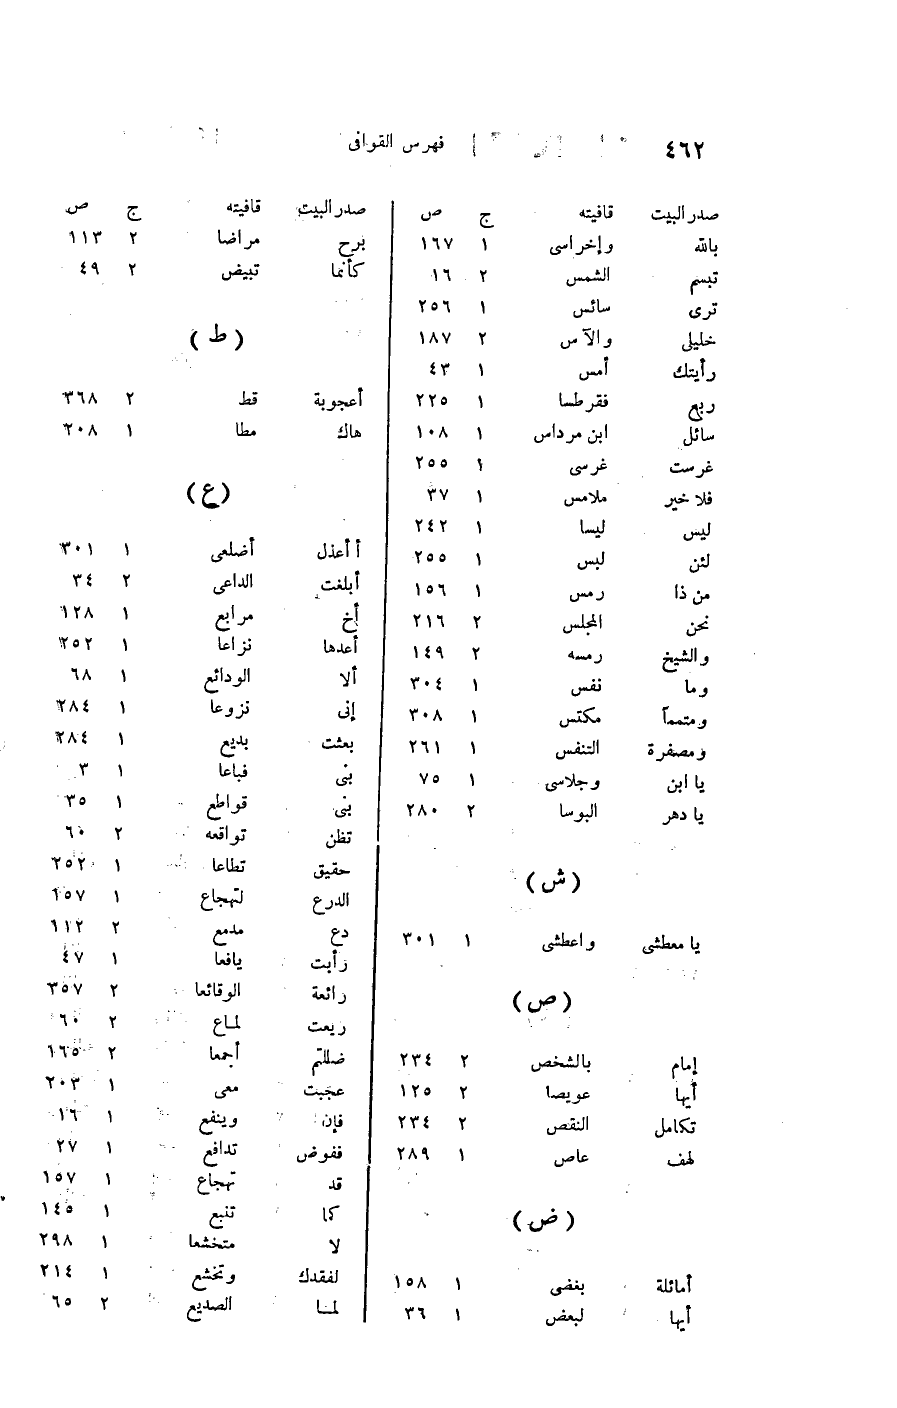 ٤٦٢ فهرس القوافى
صدر البيت قافيته ج ص
بالله وإخراسى ١ ١٦٧
تبسم الشمس ٢ ١٦
ترى سائس ١ ٢٥٦
خليلى والآس ٢ ١٨٧
رأيتك أمس ١ ٤٣
ربع فقرطسا ١ ٢٢٥
سائل ابن مرداس ١ ١٠٨
غرست غرسى ١ ٢٥٥
فلا خير ملامس ١ ٣٧
ليس ليسا ١ ٢٤٢
لئن لبس ١ ٢٥٥
من ذا رمس ١ ١٥٦
نحن المجلس ٢ ٢١٦
والشيخ رمسه ٢ ١٤٩
وما نفس ١ ٣٠٤
ومتمماً مكتس ١ ٣٠٨
ومصفرة التنفس ١ ٢٦١
يا ابن وجلاسى ١ ٧٥
يا دهر البوسا ٢ ٢٨٠
(ش)
يا معطشى واعطشى ١ ٣٠١
(ص)
إمام بالشخص ٢ ٢٣٤
أيها عويصا ٢ ١٢٥
تكامل النقص ٢ ٢٣٤
لهف عاص ١ ٢٨٩
(ض)
أماثلة بغضى ١ ١٥٨
أيها لبعض ١ ٣٦
صدر البيت قافيته ج ص
برح مراضا ٢ ١١٣
كأنما تبيض ٢ ٤٩
(ط)
أعجوبة قط ٢ ٣٦٨
هاك مطا ١ ٢٠٨
(ع)
أ أعذل أضلعى ١ ٣٠١
أبلغت الداعى ٢ ٣٤
أخ مرابع ١ ١٢٨
أعدها نزاعا ١ ٢٥٢
ألا الودائع ١ ٦٨
إنى نزوعا ١ ٢٨٤
بعثت بديع ١ ٢٨٤
بنى فباعا ١ ٣
بنى قواطع ١ ٣٥
تظن تواقعه ٢ ٦٠
حقيق تطاعا ١ ٢٥٢
الدرع لتهجاع ١ ١٥٧
دع مدمع ٢ ١١٢
رأيت يافعا ١ ٤٧
رائعة الوقائعا ٢ ٣٥٧
ريعت لماع ٢ ٦٠
ضللتم أجمعا ٢ ١٦٥
عجبت معى ١ ٢٠٣
فإن وينفع ١ ١٦
ففوض تدافع ١ ٢٧
قد تهجاع ١ ١٥٧
كما تنبع ١ ١٤٥
لا متخشعا ١ ٢٩٨
لفقدك وتخشع ١ ٢١٤
لمـا الصديع ٢ ٦٥